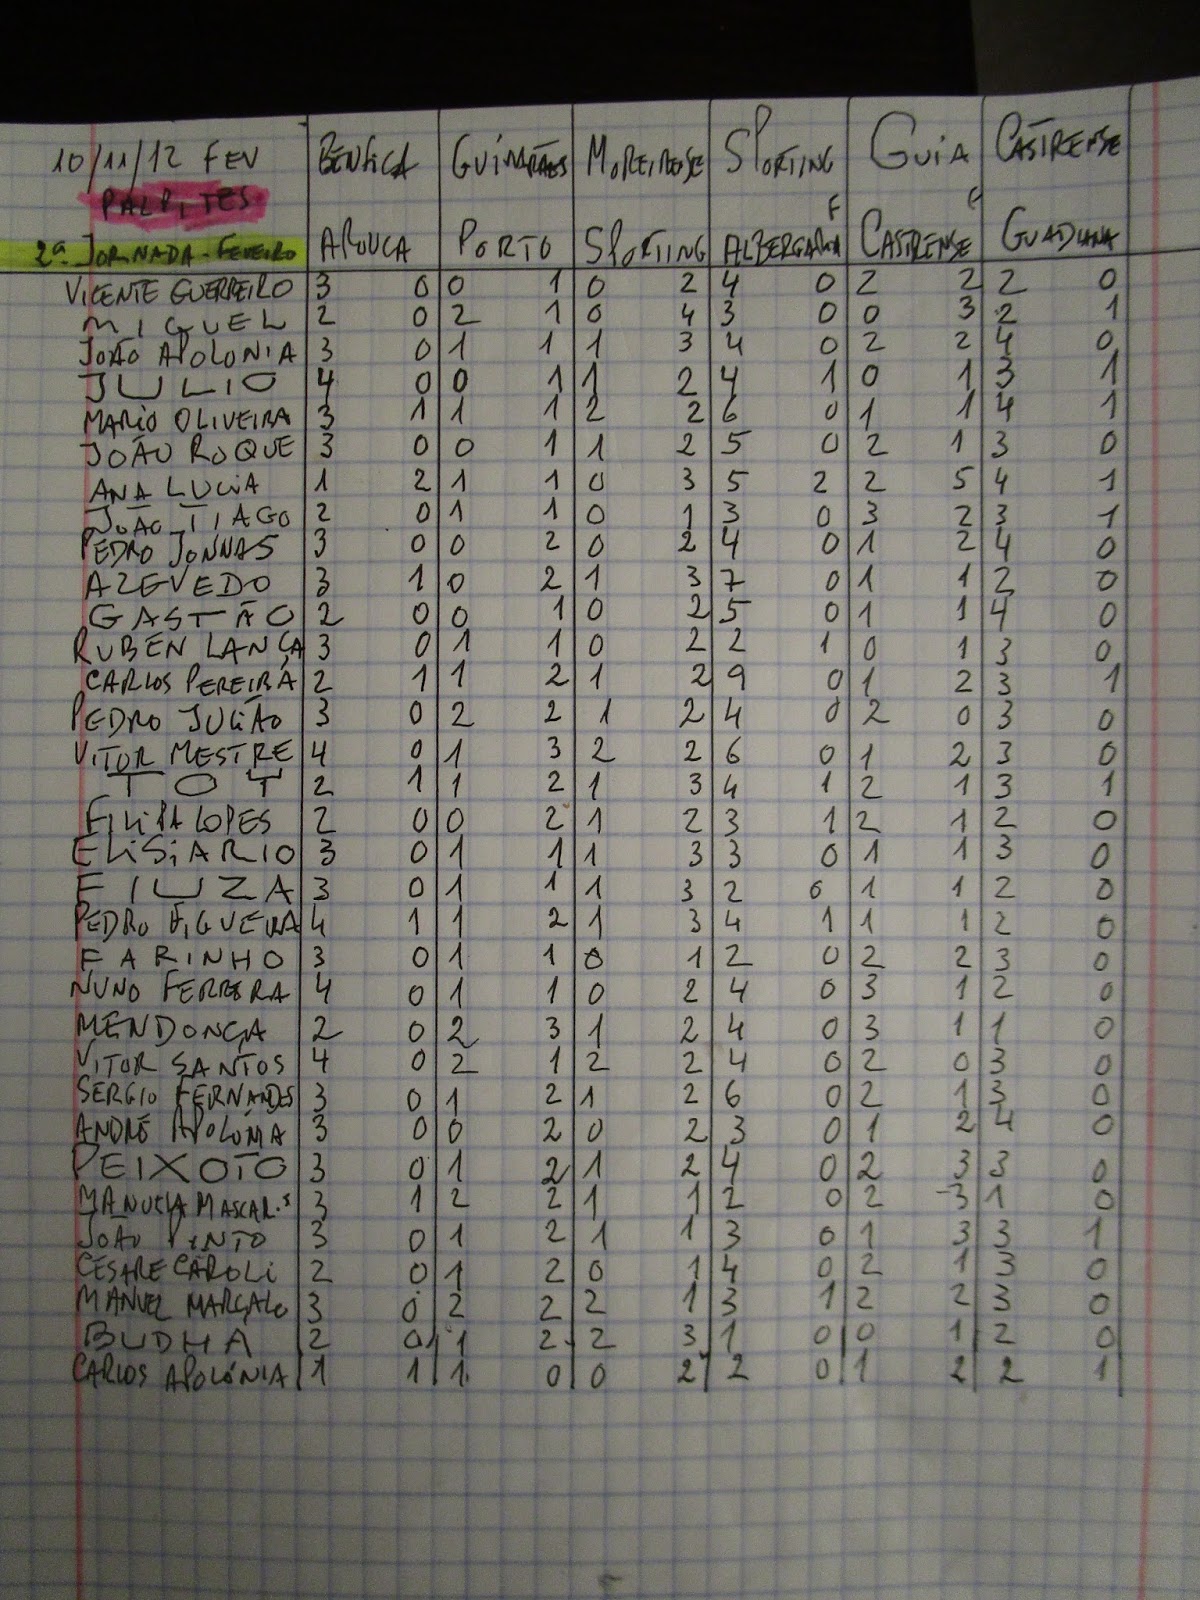 10/11/12 FEV BENFICA GUIMARÃES MOREIRENSE SPORTING GUIA CASTRENSE
PALPITES
F F
2ª JORNADA - FEVEIRO AROUCA PORTO SPORTING ALBERGARIA CASTRENSE GUADIANA
VICENTE GUERREIRO 3 0 0 1 0 2 4 0 2 2 2 0
MIGUEL 2 0 2 1 0 4 3 0 0 3 2 1
JOÃO APOLONIA 3 0 1 1 1 3 4 0 2 2 4 0
JULIO 4 0 0 1 1 2 4 1 0 1 3 1
MARIO OLIVEIRA 3 1 1 1 2 2 6 0 1 1 4 1
JOÃO ROQUE 3 0 0 1 1 2 5 0 2 1 3 0
ANA LUCIA 1 2 1 1 0 3 5 2 2 5 4 1
JOÃO TIAGO 2 0 1 1 0 1 3 0 3 2 3 1
PEDRO JONNAS 3 0 0 2 0 2 4 0 1 2 4 0
AZEVEDO 3 1 0 2 1 3 7 0 1 1 2 0
GASTÃO 2 0 0 1 0 2 5 0 1 1 4 0
RUBEN LANÇA 3 0 1 1 0 2 2 1 0 1 3 0
CARLOS PEREIRA 2 1 1 2 1 2 9 0 1 2 3 1
PEDRO JULIÃO 3 0 2 2 1 2 4 0 2 0 3 0
VITOR MESTRE 4 0 1 3 2 2 6 0 1 2 3 0
TOT 2 1 1 2 1 3 4 1 2 1 3 1
FILIPA LOPES 2 0 0 2 1 2 3 1 2 1 2 0
ELISIARIO 3 0 1 1 1 3 3 0 1 1 3 0
FIUZA 3 0 1 1 1 3 2 0 1 1 2 0
PEDRO FIGUEIRA 4 1 1 2 1 3 4 1 1 1 2 0
FARINHO 3 0 1 1 0 1 2 0 2 2 3 0
NUNO FERREIRA 4 0 1 1 0 2 4 0 3 1 2 0
MENDONÇA 2 0 2 3 1 2 4 0 3 1 1 0
VITOR SANTOS 4 0 2 1 2 2 4 0 2 0 3 0
SERGIO FERNANDES 3 0 1 2 1 2 6 0 2 1 3 0
ANDRÉ APOLONIA 3 0 0 2 0 2 3 0 1 2 4 0
PEIXOTO 3 0 1 2 1 2 4 0 2 3 3 0
MANUELA MASCAR.S 3 1 2 2 1 1 2 0 2 3 1 0
JOÃO PINTO 3 0 1 2 1 1 3 0 1 3 3 1
CESARE CAROLI 2 0 1 2 0 1 4 0 2 1 3 0
MANUEL MARÇALO 3 0 2 2 2 1 3 1 2 2 3 0
BUDHA 2 0 1 2 2 3 1 0 0 1 2 0
CARLOS APOLÓNIA 1 1 1 0 0 2 2 0 1 2 2 1